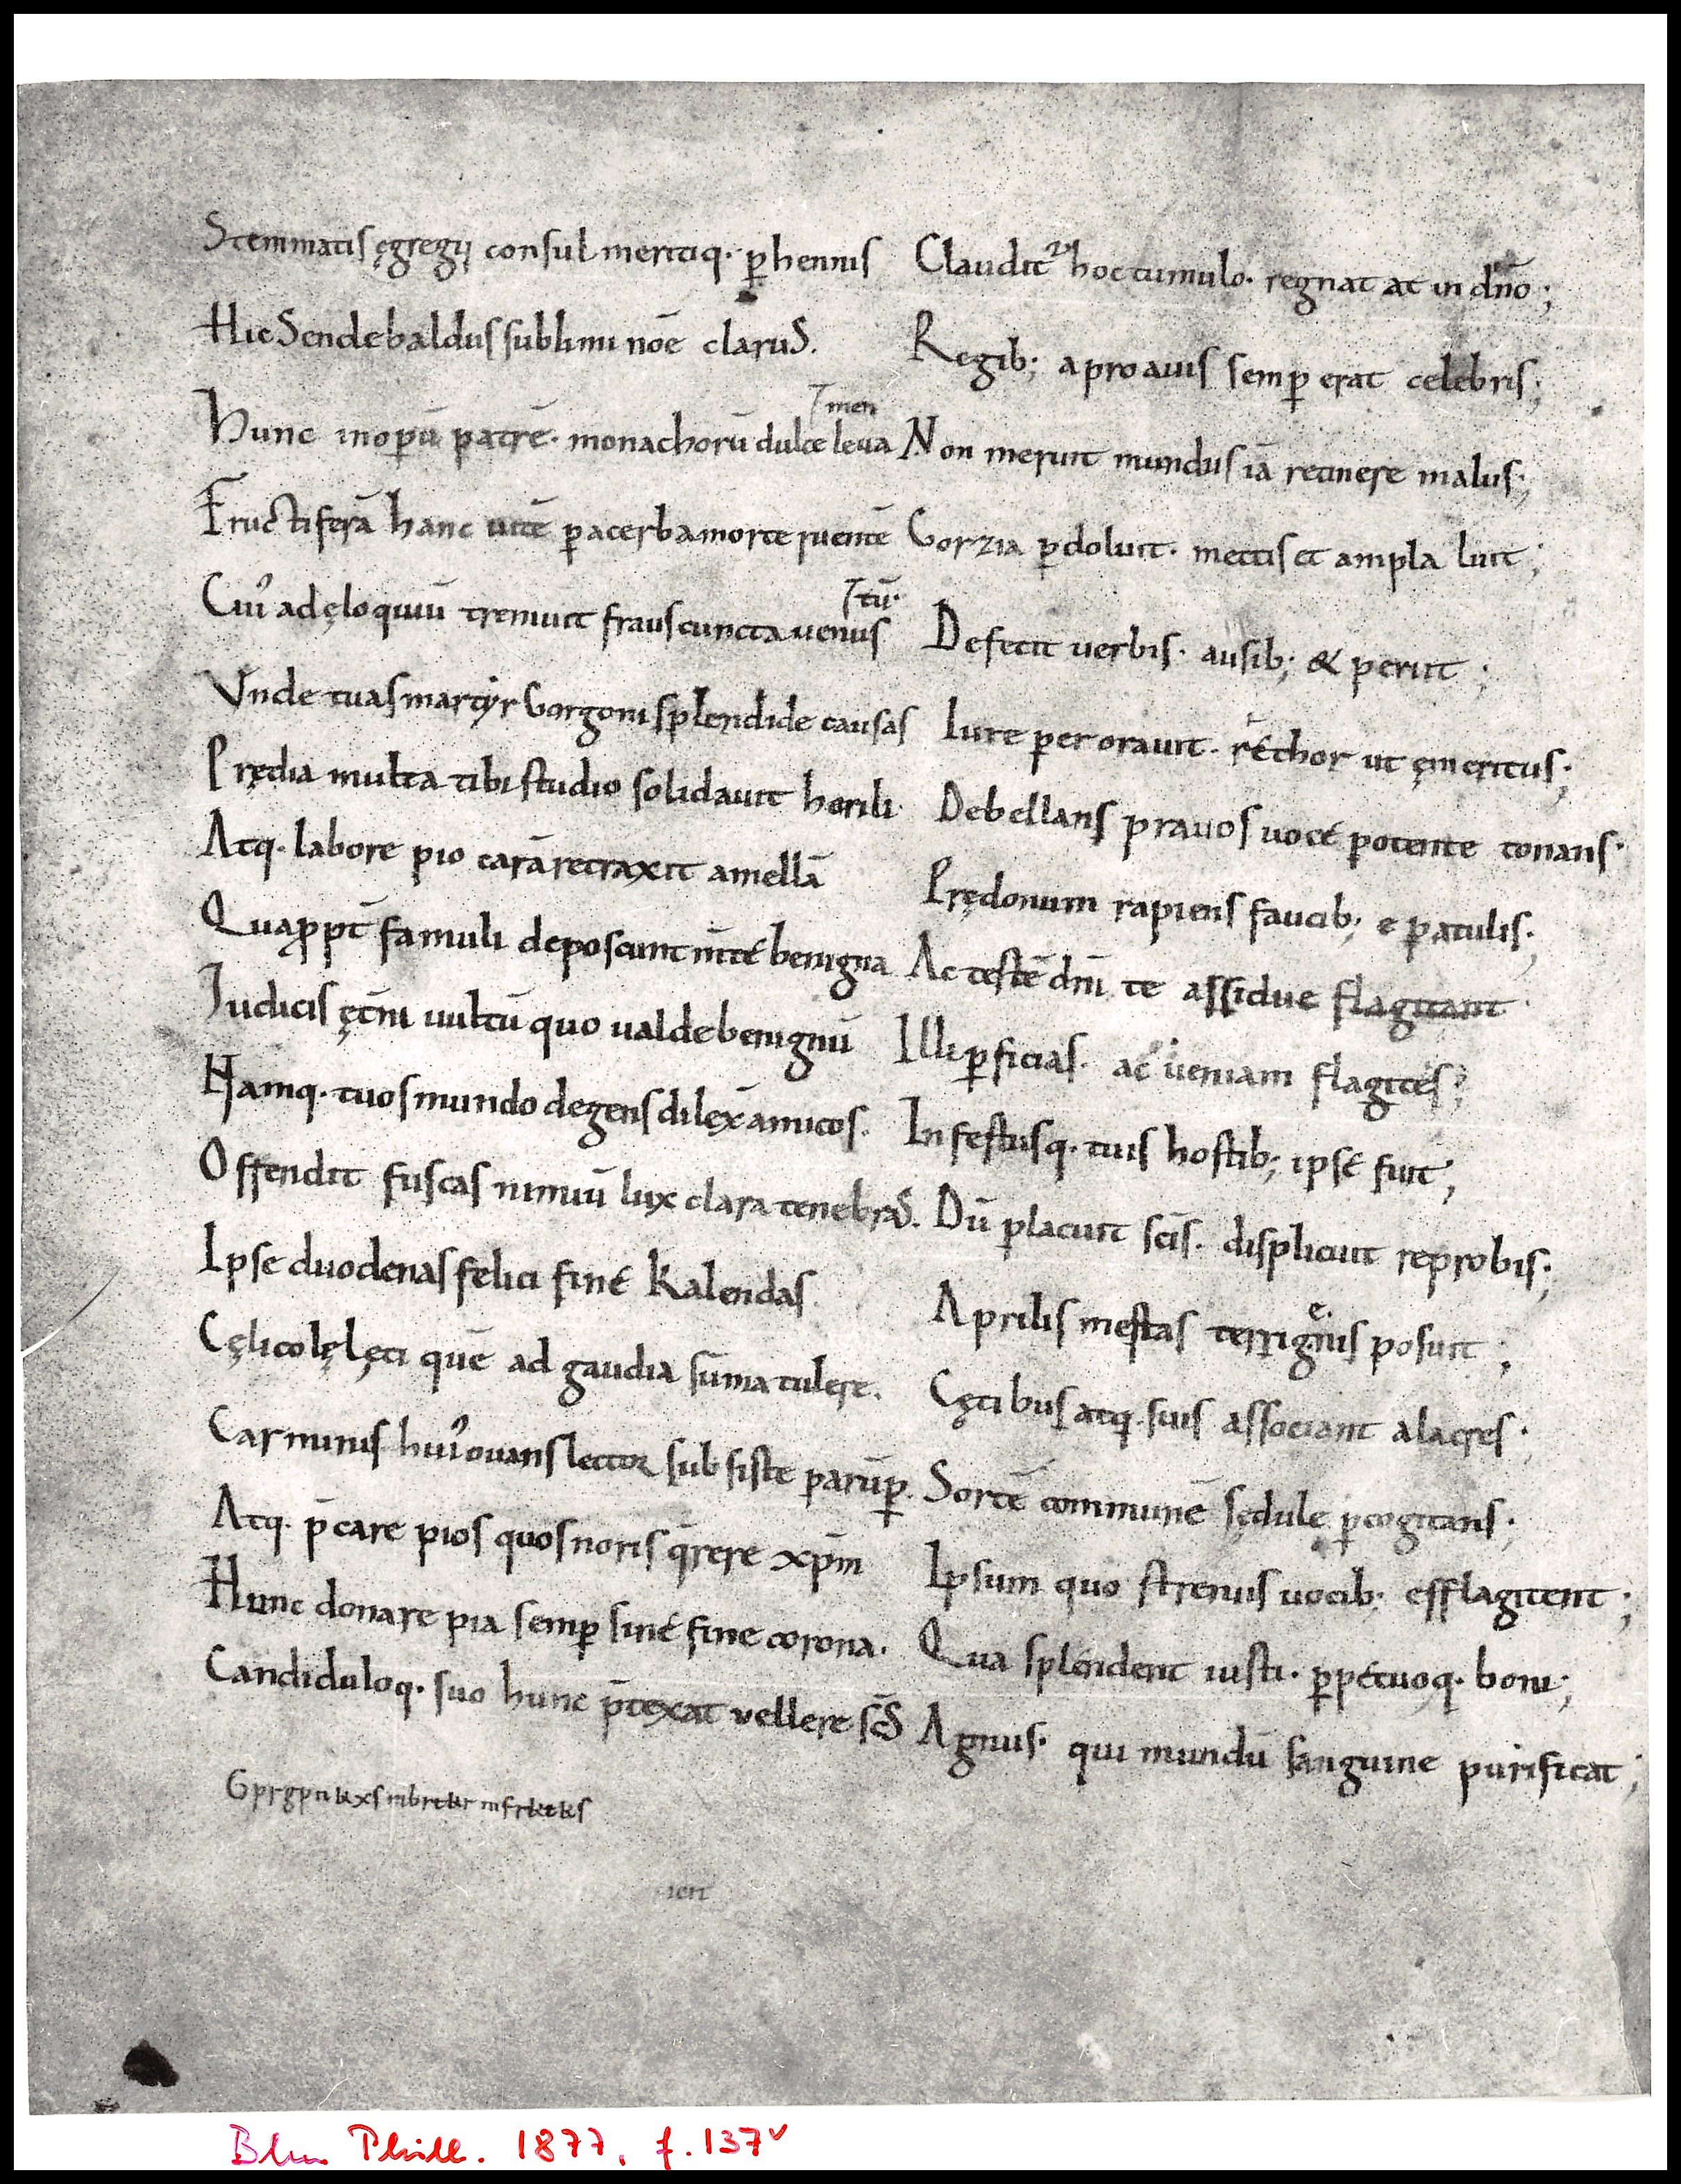 Stemmatis ęgregij consul meritiq· ꝑhennis Claudit᷑ hoc tumulo· regnat at in dn̄o;
Hic Sendebaldus sublimi nōe clarus. Regib; a proauis semꝑ erat celebris;
ł men
Hunc inopū patrē· monachorū dulce leua Non meruit mundus iā retinere malus;
Fructiferā hanc uitē ꝑ acerba morte ruentē Gorzia ꝑdoluit· mettis et ampla luit;
ł tū·
Cui᾽ ad ęloquiū tremuit fraus cuncta uenus Defecit uerbis· ausib; & periit;
Vnde tuas martyr Gorgoni splendide causas Iure perorauit· réthor ut ęmeritus;
Prędia multa tibi studio solidauit herili· Debellans prauos uocé potente tonans·
Atq· labore pio carā retraxit amellā Prędonum rapiens faucib; e patulis;
Quaꝓpt̄ famuli deposcunt m̄té benigna Ac testē dn̄i te assidue flagitant
Iudicis ęt̄ni uultū quo ualde benignū Illi ꝑficias· ac ueniam flagites;
Namq· tuos mundo degens dilex̄ amicos. Infestusq· tuis hostib; ipsé fuit;
Offendit fuscas nimiū lux clara tenebras. Dū placuit sc̄is· displicuit reprobis;
Ipse duodenas felici finé kalendas Aprilis mestas terrigenis posuit;
Cęlicolę lęti quē ad gaudia sūma tulere. Cętibus atq· suis associant alacres;
Carminis hui᾽ ouans lector subsiste parūꝑ. Sortē communē sędule ꝑcogitans·
Atq· p̄care pios quos noris q̄rere xp̄m Ipsum quo strenuis uocib· efflagitent;
Hunc donare pia semꝑ siné fine corona. Qua splendent iusti· ꝑpétuoq· boni;
Candiduloq· suo hunc p̄texat uellere sc̄s Agnus· qui mundū sanguine purificat;
Gprgpnkxs mbrtkr mfrktks
ien
Bln Phill. 1877, f. 137v